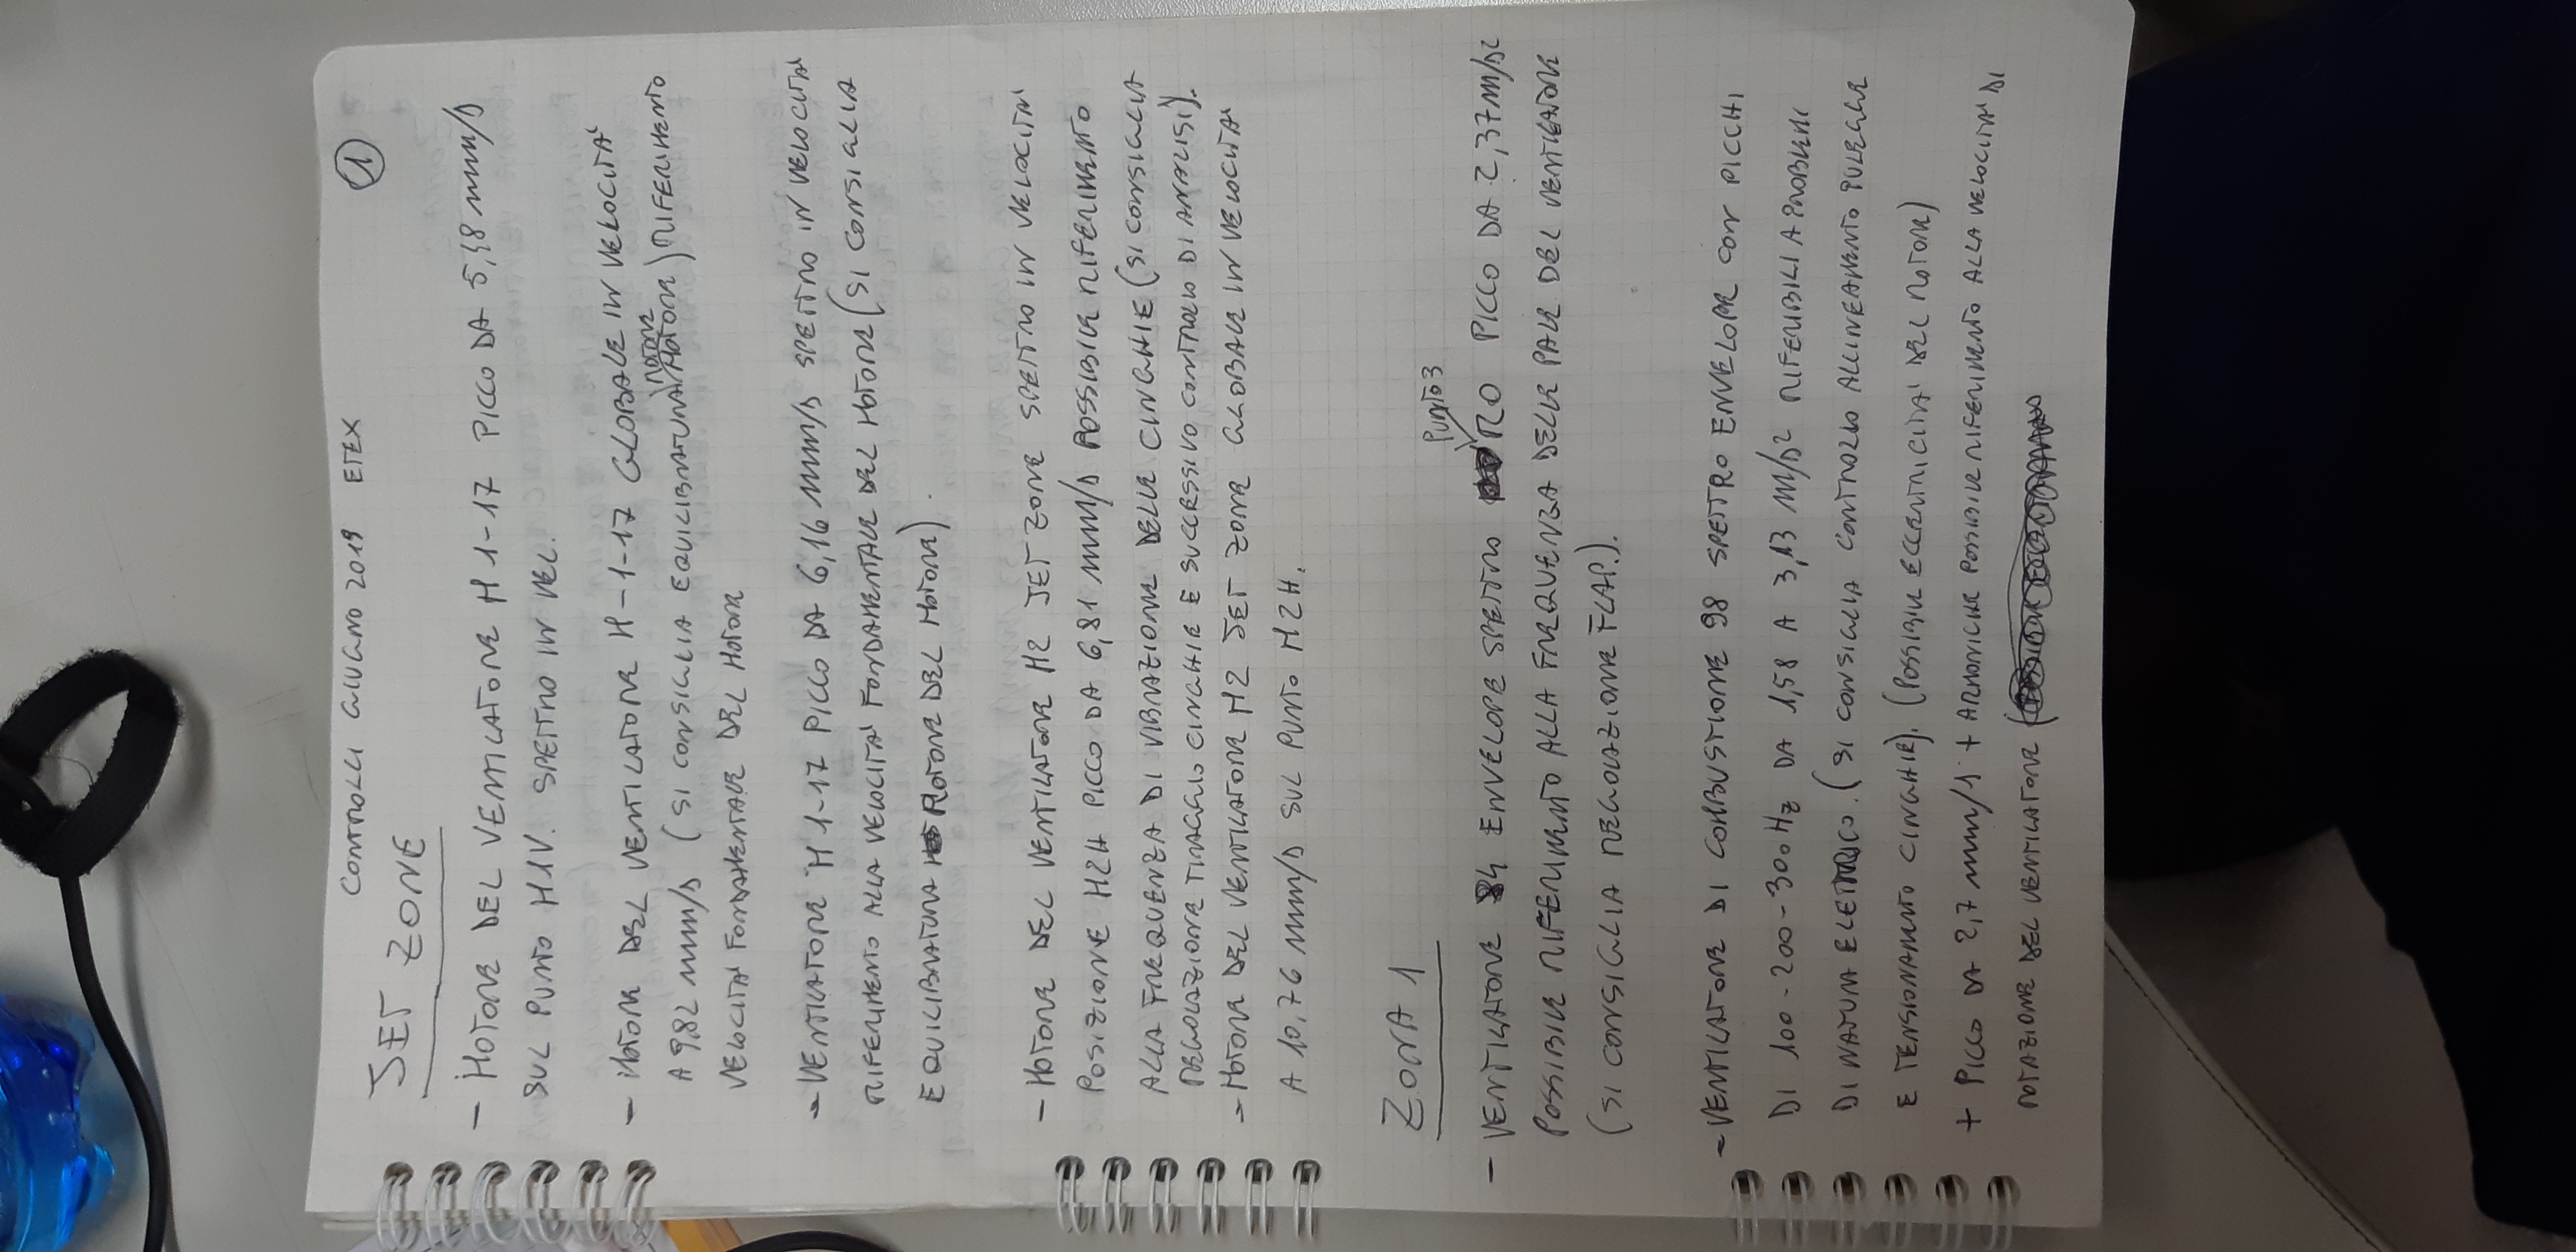 CONTROLLI GIUGNO 2019 ETEX
1
JET ZONE
- MOTORE DEL VENTILATORE M 1-17 PICCO DA 5,58 mm/s
SUL PUNTO M1V. SPETTRO IN VEL.
- MOTORE DEL VENTILATORE M-1-17 GLOBALE IN VELOCITA'
A 9,82 mm/s (SI CONSIGLIA EQUILIBRATURA ROTORE MOTORE) RIFERIMENTO
VELOCITA' FONDAMENTALE DEL MOTORE
- VENTILATORE M 1-17 PICCO DA 6,16 mm/s SPETTRO IN VELOCITA'
RIFERIMENTO ALLA VELOCITA' FONDAMENTALE DEL MOTORE (SI CONSIGLIA
EQUILIBRATURA ROTORE DEL MOTORE).
- MOTORE DEL VENTILATORE M2 JET ZONE SPETTRO IN VELOCITA'
POSIZIONE M2H PICCO DA 6,81 mm/s POSSIBILE RIFERIMENTO
ALLA FREQUENZA DI VIBRAZIONE DELLE CINGHIE (SI CONSIGLIA
REGOLAZIONE TIRAGGIO CINGHIE E SUCCESSIVO CONTROLLO DI ANALISI).
- MOTORE DEL VENTILATORE M2 JET ZONE GLOBALE IN VELOCITA'
A 10,76 mm/s SUL PUNTO M2H.
ZONA 1
PUNTO 3
- VENTILATORE 84 ENVELOPE SPETTRO RO PICCO DA 2,37 m/s2
POSSIBILE RIFERIMENTO ALLA FREQUENZA DELLE PALE DEL VENTILATORE
(SI CONSIGLIA REGOLAZIONE FLAP.).
- VENTILATORE DI COMBUSTIONE 98 SPETTRO ENVELOPE CON PICCHI
DI 100-200-300 Hz DA 1,58 A 3,13 m/s2 RIFERIBILI A PROBLEMI
DI NATURA ELETTRICO. (SI CONSIGLIA CONTROLLO ALLINEAMENTO PULEGGE
E TENSIONAMENTO CINGHIE). (POSSIBILE ECCENTRICITA' DEL ROTORE)
+ PICCO DA 2,7 mm/s + ARMONICHE POSSIBILE RIFERIMENTO ALLA VELOCITA' DI
ROTAZIONE DEL VENTILATORE